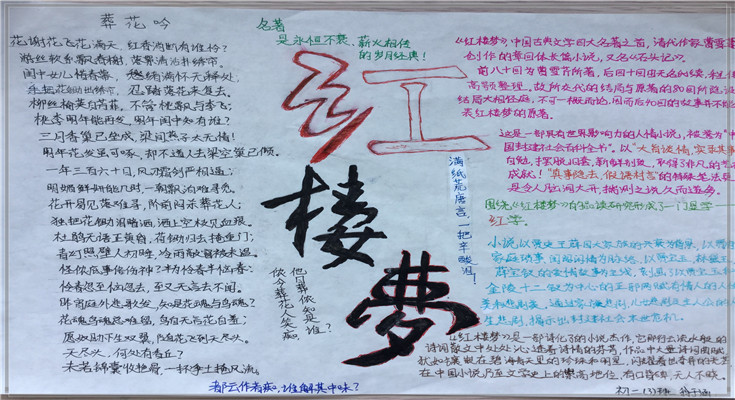 葬花吟
花谢花飞花满天，红香消断有谁怜？
游丝软系飘春榭，落絮轻沾扑绣帘。
闺中女儿惜春暮，愁绪满怀无释处，
手把花锄出绣帘，忍踏落花来复去。
柳丝榆荚自芳菲，不管桃飘与李飞；
桃李明年能再发，明年闺中知有谁？
三月香巢已垒成，梁间燕子太无情！
明年花发虽可啄，却不道人去梁空巢已倾。
一年三百六十日，风刀霜剑严相逼；
明媚鲜妍能几时，一朝飘泊难寻觅。
花开易见落难寻，阶前闷杀葬花人；
独把花锄泪暗洒，洒上空枝见血痕。
杜鹃无语正黄昏，荷锄归去掩重门；
青灯照壁人初睡，冷雨敲窗被未温。
怪侬底事倍伤神？半为怜春半恼春：
怜春忽至恼忽去，至又无言去不闻。
昨宵庭外悲歌发，知是花魂与鸟魂？
花魂鸟魂总难留，鸟自无言花自羞；
愿奴胁下生双翼，随花飞到天尽头。
天尽头，何处有香丘？
未若锦囊收艳骨，一抔净土掩风流。
他日葬侬知是谁？
侬今葬花人笑痴，
都云作者痴，谁解其中味？
名著
是永恒不衰、薪火相传
的岁月经典！
红
楼
夢
满纸荒唐言，一把辛酸泪！
《红楼梦》，中国古典文学四大名著之首，清代作家曹雪芹
创作的章回体长篇小说，又名《石头记》。
前八十回为曹雪芹所著，后四十回由无名氏续，
高鹗整理，故所交代的结局与原著的80回所隐
结局大相径庭，不可一概而论，因而后40回的故事并不能代
表红楼梦的原著。
这是一部具有世界影响力的人情小说，被誉为"中
国封建社会百科全书"。以"大旨谈情，实录其事"
自勉，摆脱旧套，新鲜别致，取得了非凡的艺术
成就！"真事隐去，假语村言"的特殊笔法更
是令人脑洞大开，揣测之说久而遂多。
围绕《红楼梦》的品读研究形成了一门显学——
红学。
小说以贾史王薛四大家族的兴衰为背景，以贾府
家庭琐事、闺阁闲情为脉络，以贾宝玉、林黛玉、
薛宝钗的爱情故事为主线，刻画了以贾宝玉和
金陵十二钗为中心的正邪两赋有情人的人性
美和悲剧美。通过家族悲剧、儿女悲剧及主人公的人
生悲剧，揭示出封建社会末世危机。
《红楼梦》是一部诗化了的小说杰作，它那行云流水般的
在中国，乃至文学史上的崇高地位，有口皆碑，无人不晓。